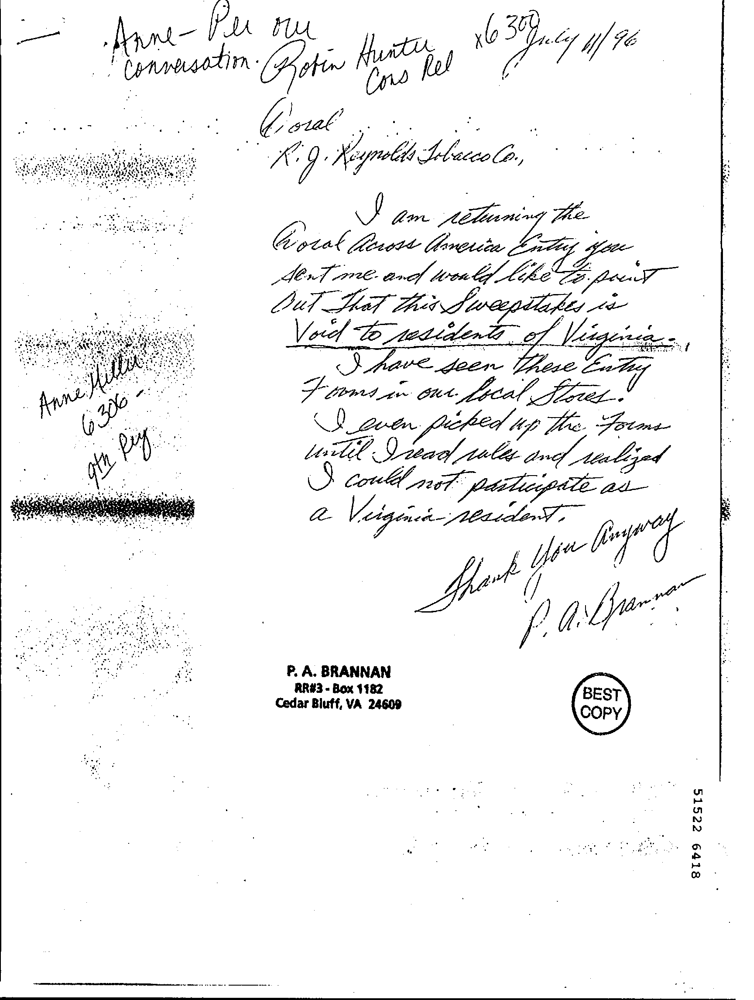 Anne - Per our
conversation. Robin Hunter x6300
Cons Rel
July 11/96
Doral
R. J. Reynolds Tobacco Co.,
I am returning the
Doral Across America Entry you
sent me and would like to point
Out That this Sweepstakes is
Void to residents of Virginia.
I have seen these Entry
Forms in our local Stores.
I even picked up the Forms
until I read rules and realized
I could not participate as
a Virginia resident.
Thank You Anyway
P. A. Brannan
Anne Hiller
6306 -
9th
P. A. BRANNAN
RR#3 - Box 1182
Cedar Bluff, VA 24609
BEST
COPY
51522 6418